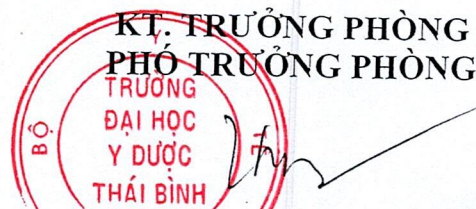 KT. TRƯỞNG PHÒNG
PHÓ TRƯỞNG PHÒNG
TRƯỜNG
ĐẠI HỌC
Y DƯỢC
THÁI BÌNH
BỘ
Y
TẾ